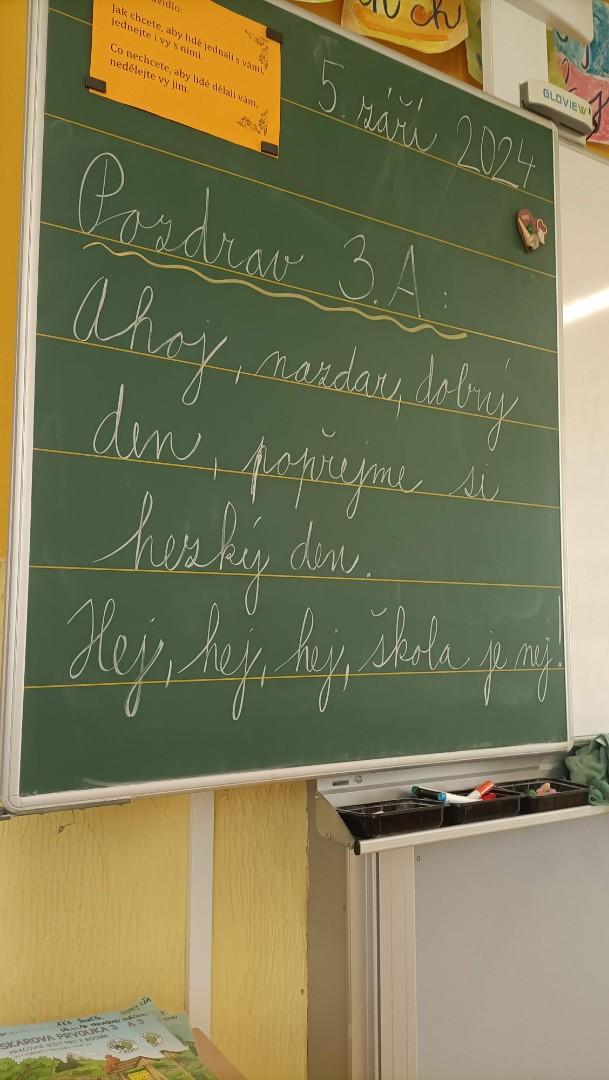 Jak chcete, aby lidé jednali s vámi,
jednejte i vy s nimi.
Co nechcete, aby lidé dělali vám,
nedělejte vy jim.
5. září 2024
GLOVIEW
Pozdrav 3.A:
Ahoj, nazdar, dobrý
den, popřejme si
hezký den.
Hej, hej, hej, škola je nej.